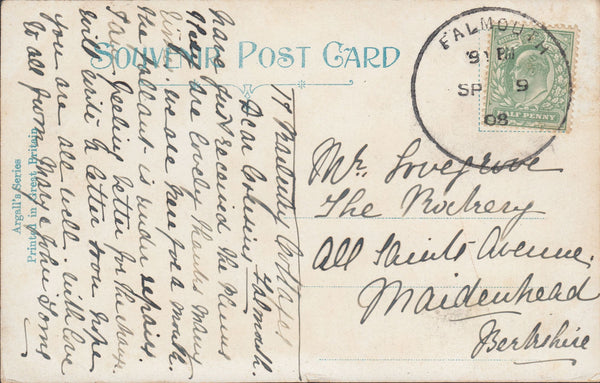 SOUVENIR POST CARD
FALMOUTH
SP 9
08
HALF PENNY
Mr. Lovegrove
The Rookery
All Saints Avenue.
Maidenhead
Berkshire
Cottages
Falmouth.
Dear Cousins
have just received the
are lovely thanks many
we are here for a month.
is under repairs.
I am feeling better for the change
will write a letter soon hope
you are all well with love
to all from
Argall's Series
Printed in Great Britain